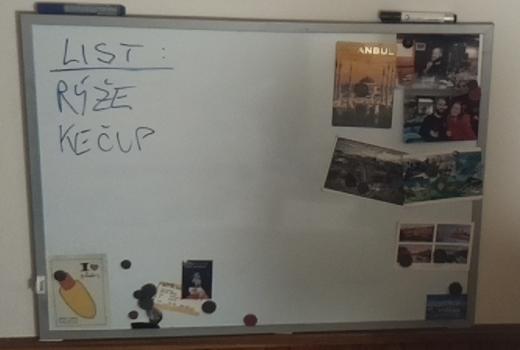 LIST:
RÝŽE
KEČUP
ANBUL
I